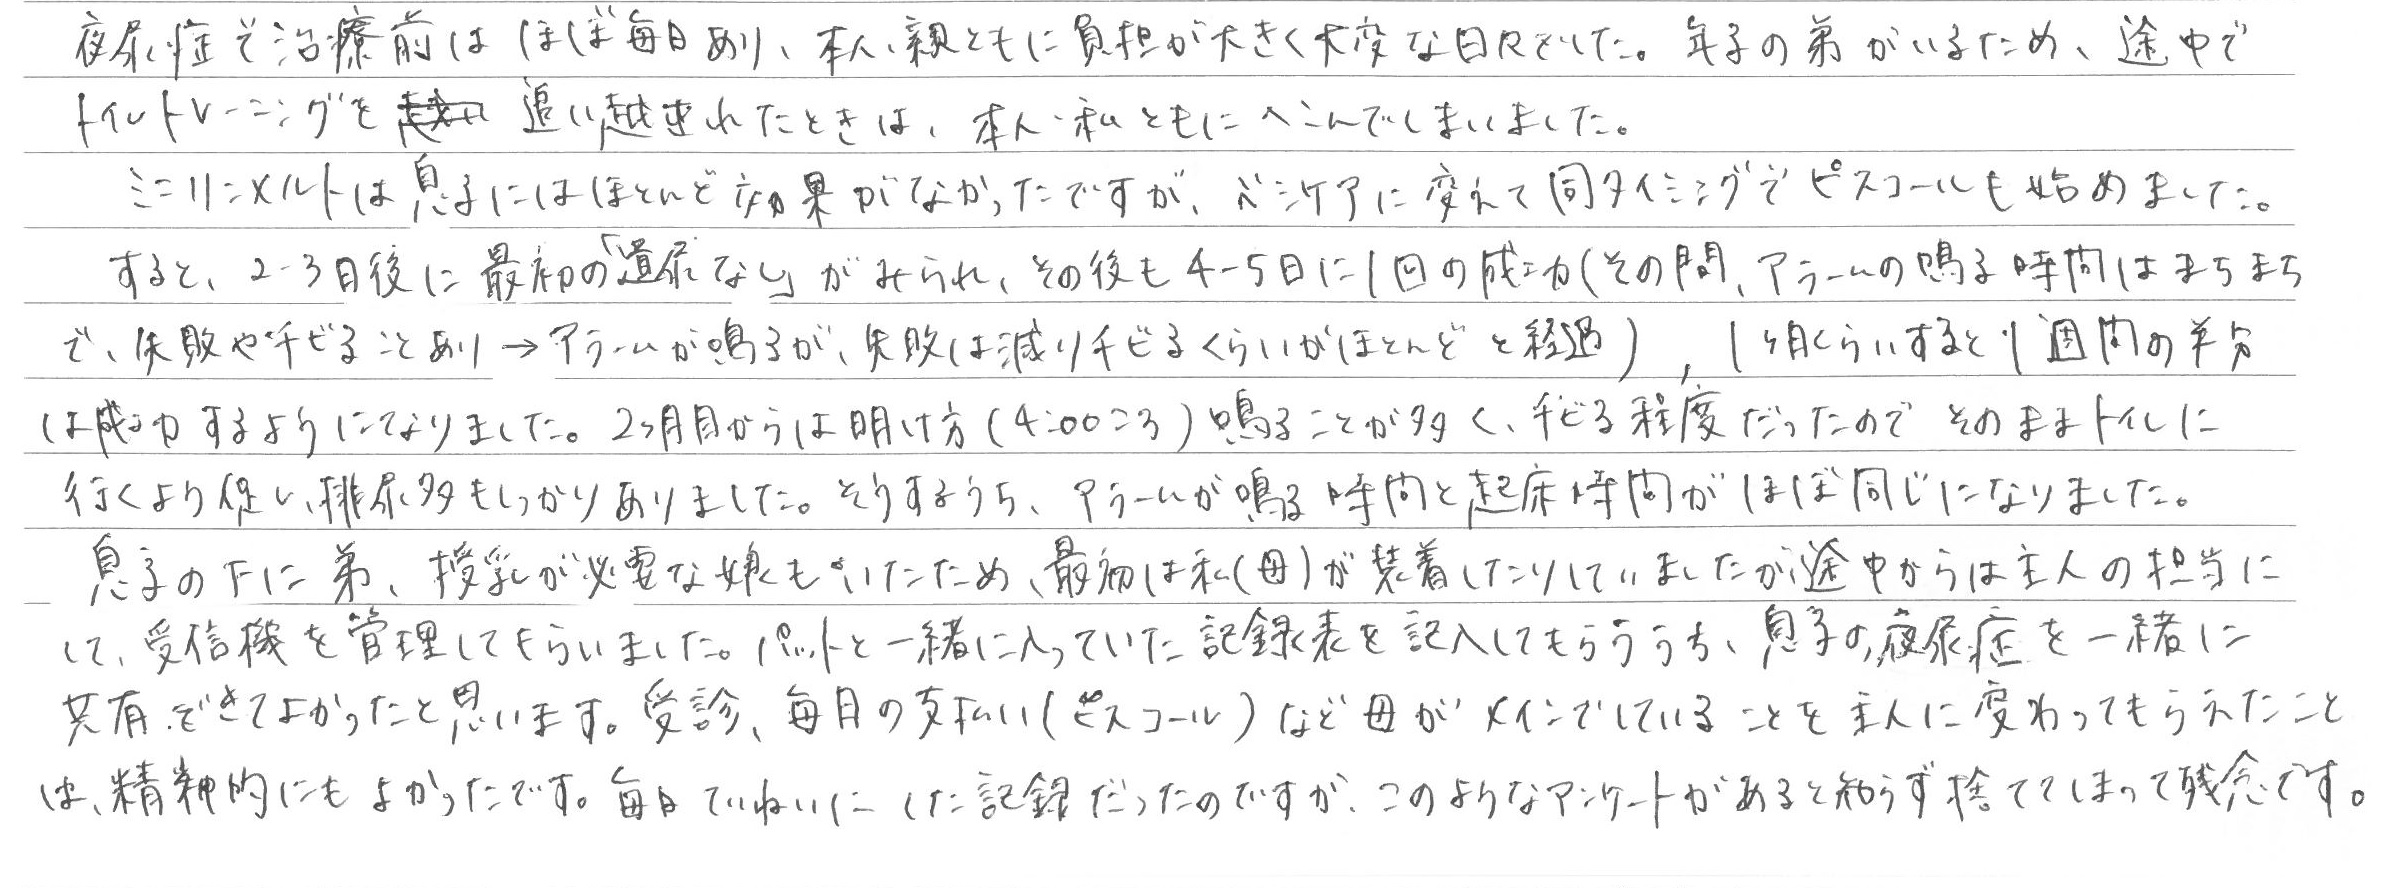 夜尿症で治療前はほぼ毎日あり、本人、親ともに負担が大きく大変な日々でした。年子の弟がいるため、途中で
トイレトレーニングを 追い越されたときは、本人・私ともにへこんでしまいました。
ミニリンメルトは息子にはほとんど効果がなかったですが、ベシケアに変えて同タイミングでピスコールも始めました。
すると、2-3日後に最初の「遺尿なし」がみられ、その後も4-5日に1回の成功(その間、アラームの鳴る時間はまちまち
で、失敗やチビることあり→アラームが鳴るが、失敗は減りチビるくらいがほとんどと経過)，1ヶ月くらいすると1週間の半分
は成功するようになりました。2ヶ月目からは明け方(4:00ころ)鳴ることが多く、チビる程度だったのでそのままトイレに
行くよう促し、排尿もしっかりありました。そうするうち、アラームが鳴る時間と起床時間がほぼ同じになりました。
息子の下に弟、授乳が必要な娘もいたため、最初は私(母)が装着したりしていましたが途中からは主人の担当に
して、受信機を管理してもらいました。パットと一緒に入っていた記録表を記入してもらううち、息子の夜尿症を一緒に
共有できてよかったと思います。受診、毎月の支払い(ピスコール)など母がメインでしていることを主人に変わってもらえたこと
は、精神的にもよかったです。毎日ていねいにした記録だったのですが、このようなアンケートがあると知らず捨ててしまって残念です。